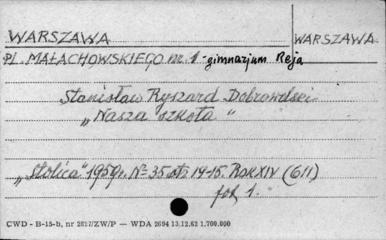 WARSZAWA WARSZAWA
PL. MAŁACHOWSKIEGO nr. 1 - gimnazjum Reja
Stanisław Ryszard Dobrowolski
„Nasza szkoła"
„Stolica" 1959r. N= 35 str. 14-15. Rok XIV (611)
fot. 1.
CWD - B-15-b, nr 2817/ZW/P — WDA 2694 13.12.62 1.700.000